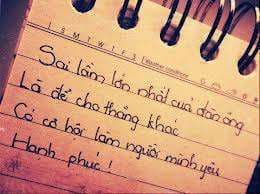 S M T W T F S Weather condition:
Sai lầm lớn nhất của đàn ông
Là để cho thằng khác
Có cơ hội làm người mình yêu
Hạnh phúc!